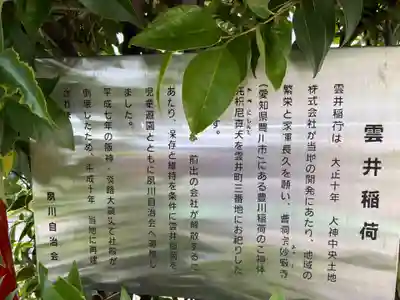 雲井稲荷
雲井稲荷は 大正十年 大神中央土地
株式会社が当地の開発にあたり、地域の
繁栄と家運長久を願い、曹洞宗妙厳寺
(愛知県豊川市)にある豊川稲荷のご神体
枳尼真天を雲井町三番地にお祀りした
す。
前出の会社が解散するに
あたり、保存と維持を条件に雲井稲荷を
児童遊園とともに夙川自治会へ寄贈し
ました。
平成七年の阪神・淡路大震災で社殿が
倒壊したため、平成十年 当地に再建
夙川自治会